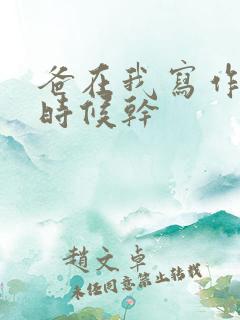 爸在我寫作
時候幹
趙文卓
未經同意禁止轉載